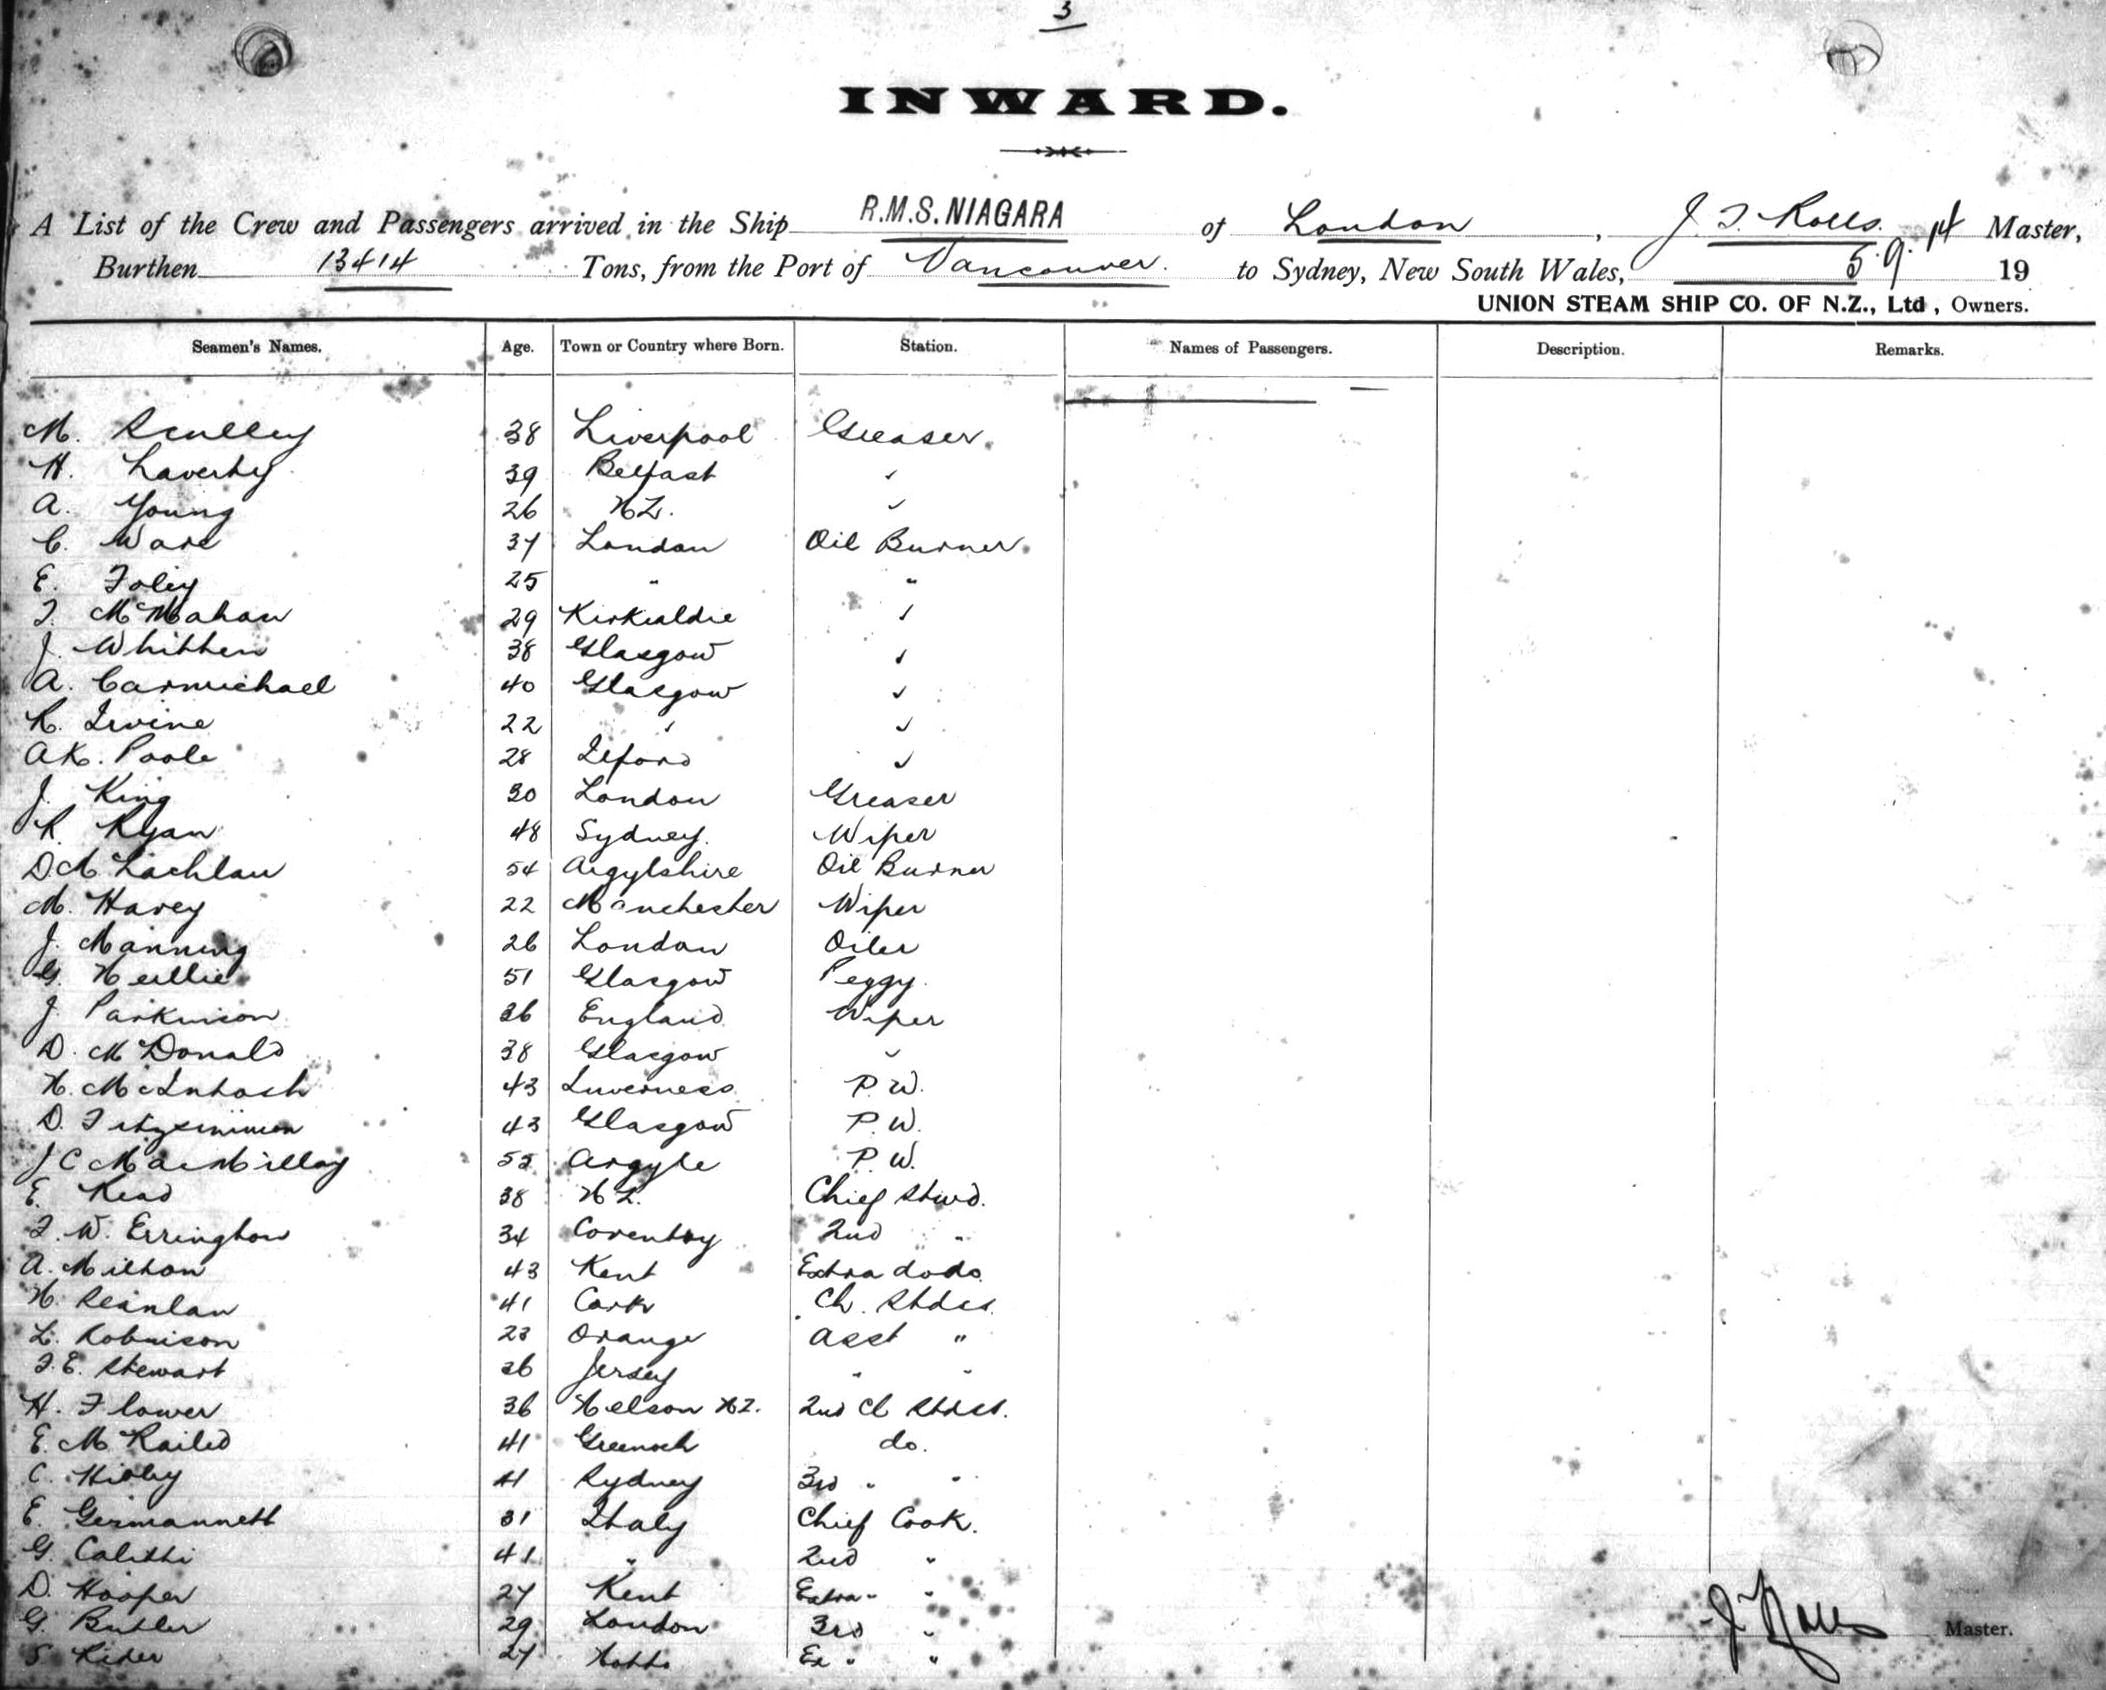 3
INWARD.
A List of the Crew and Passengers arrived in the Ship R.M.S. NIAGARA of London, J. T. Rolls. Master,
Burthen 13414 Tons, from the Port of Vancouver. to Sydney, New South Wales, 5.9.14 19
UNION STEAM SHIP CO. OF N.Z., Ltd, Owners.
Seamen's Names. Age. Town or Country where Born. Station. Names of Passengers. Description. Remarks.
M. Sculley 38 Liverpool Greaser.
H. Laverty 39 Belfast "
A. Young 26 N.Z. "
C. Ware 37 London Oil Burner.
E. Foley 25 " "
T. McMahan 29 Kirkialdie "
J. Whitten 38 Glasgow "
A. Carmichael 40 Glasgow "
R. Irvine 22 " "
A K. Poole 28 Ilford "
J. King 30 London Greaser
R. Ryan 48 Sydney. Wiper
D Mc Lachlan 54 Argylshire Oil Burner
M. Harey 22 Manchester Wiper
J. Manning 26 London Oiler
G. Neillie 51 Glasgow Peggy.
J. Parkinson 36 England Wiper
D. McDonald 38 Glasgow "
N. McIntosh 43 Inverness P.W.
D. Fitzsimmon 43 Glasgow P.W.
J C MacMillan 55 Argyle P.W.
E. Read 38 N Z. Chief Stwd.
F. W. Errington 34 Coventry 2nd "
A. Milton 43 Kent Extra dodo
N. Scanlan 41 Cork Ch. Stdss.
L. Robinson 23 Orange Asst "
F. E. Stewart 26 Jersey " "
H. Flower 36 Nelson NZ. 2nd Cl Stdss.
E. M Railed 41 Greenock do.
C. 41 Sydney 3rd " "
E. Germannett 31 Italy Chief Cook.
G. Calitti 41 " 2nd "
D. Hooper 27 Kent Extra " "
G. Butler 29 London 3rd "
S. Rider 27 Notts Ex " "
J. Rolls Master.